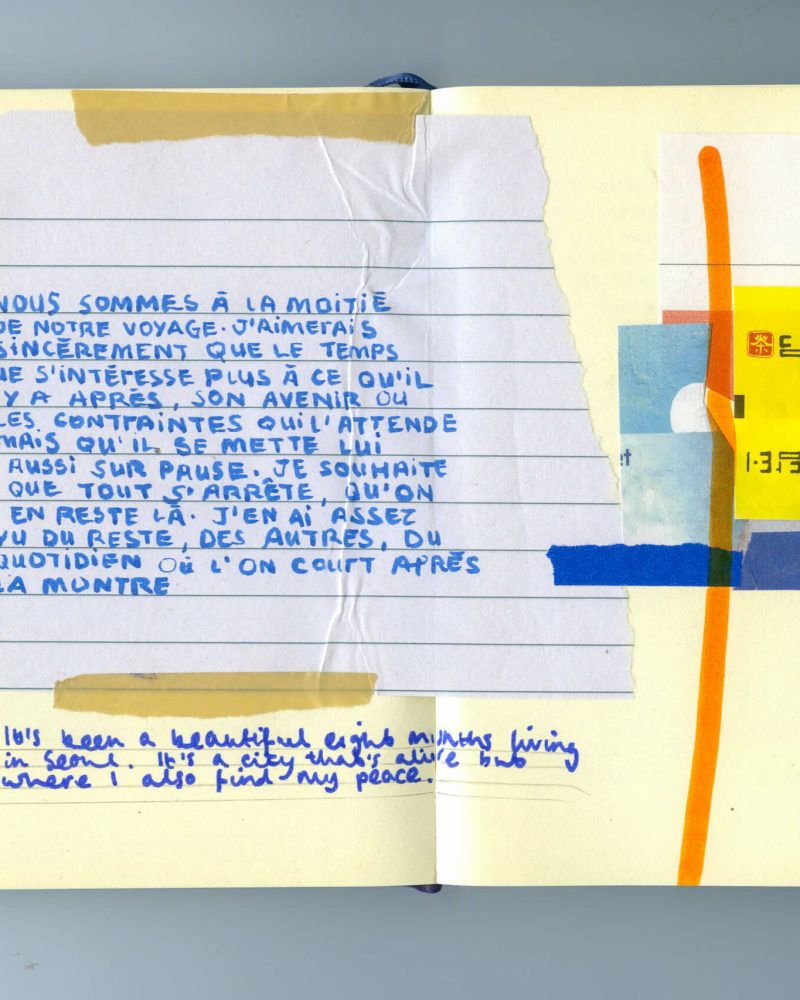 NOUS SOMMES À LA MOITIÉ
DE NOTRE VOYAGE. J'AIMERAIS
SINCÈREMENT QUE LE TEMPS
NE S'INTÉRESSE PLUS À CE QU'IL
Y A APRÈS, SON AVENIR OU
LES CONTRAINTES QUI L'ATTENDE
MAIS QU'IL SE METTE LUI
AUSSI SUR PAUSE. JE SOUHAITE
QUE TOUT S'ARRÊTE, QU'ON
EN RESTE LÀ. J'EN AI ASSEZ
VU DU RESTE, DES AUTRES, DU
QUOTIDIEN OÙ L'ON COURT APRÈS
LA MONTRE
It's been a beautiful eight months living
in Seoul. It's a city that's alive but
where I also find my peace.
et
茶